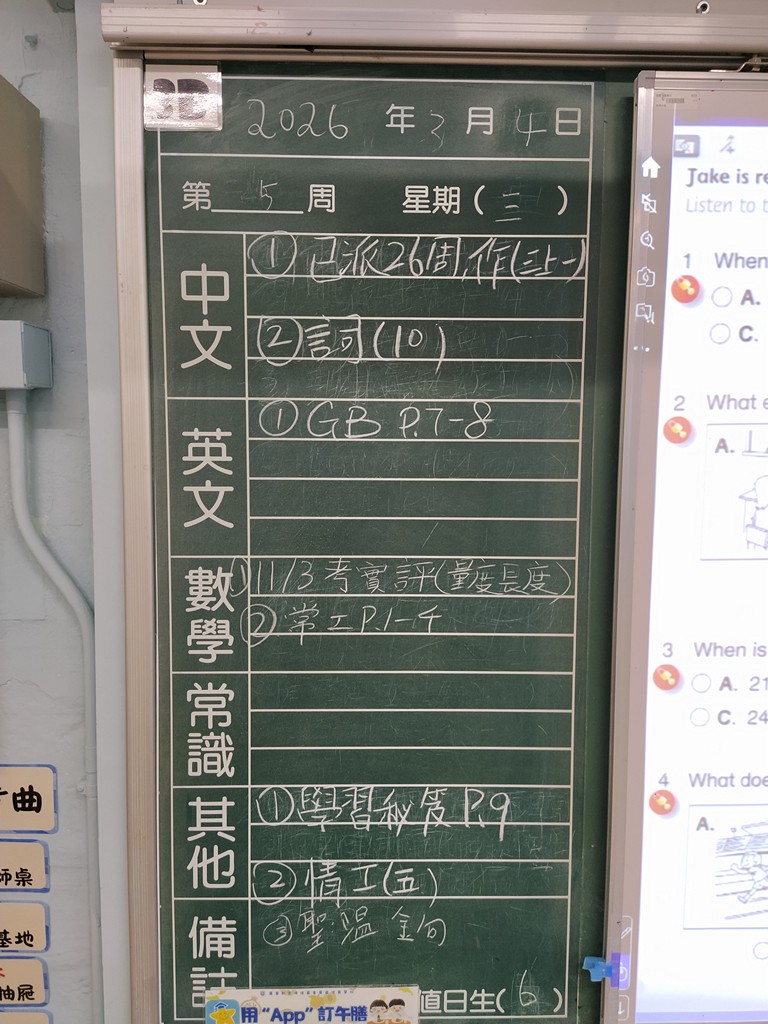 3D
2026 年 3 月 4 日
第 5 周 星期 ( 三 )
中文
① 已派26周作(三上一)
② 詞(10)
英文
① GB P.7-8
數學
① 11/3 考實評(量度長度)
② 常工P.1-4
常識
其他
① 學習秘笈P.9
② 情工(五)
備註
③ 聖溫 金句
值日生( 6 )
用 “App” 訂午膳
曲
師桌
基地
抽屜
Jake is re
Listen to t
1 When
A.
C.
2 What e
A.
3 When is
A. 21
C. 24
4 What doe
A.